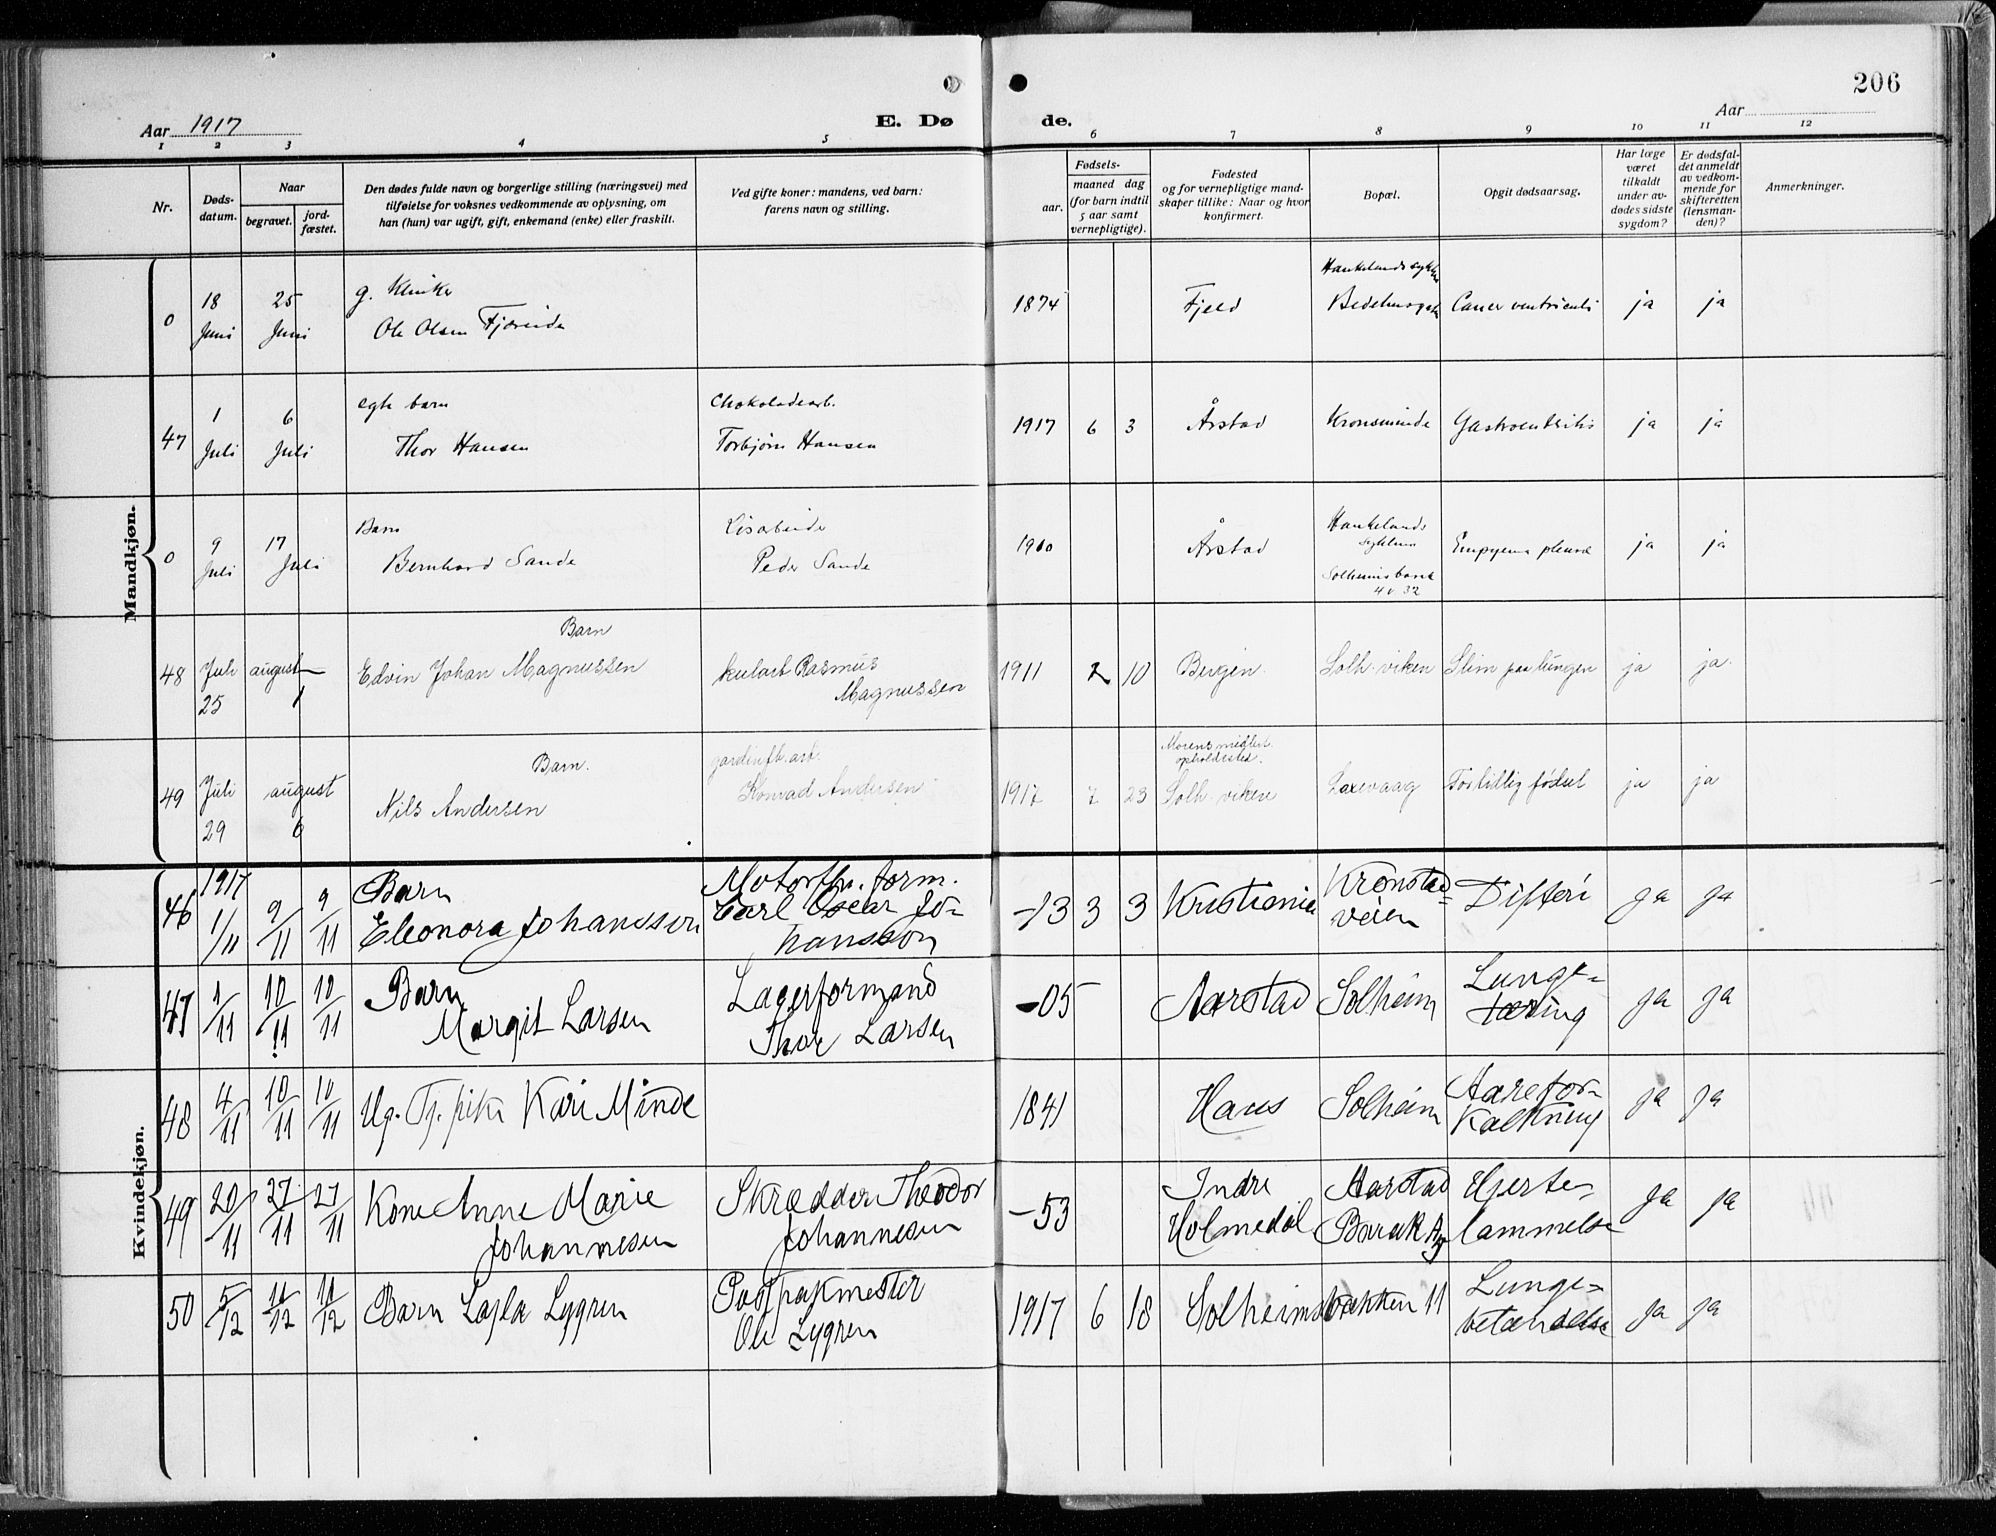 206
Aar 1917
E. Dø
de.
Aar
1 2 3 4 5 6 7 8 9 10 11 12
Nr.
Døds-
datum.
Naar
begravet.
jord-
fæstet.
Den dødes fulde navn og borgerlige stilling (næringsvei) med
tilføielse for voksnes vedkommende av oplysning, om
han (hun) var ugift, gift, enkemand (enke) eller fraskilt.
Ved gifte koner: mandens, ved barn:
farens navn og stilling.
Fødsels-
aar.
maaned dag
(for barn indtil
5 aar samt
vernepligtige).
Fødested
og for vernepligtige mand-
skaper tillike: Naar og hvor
konfirmert.
Bopæl.
Opgit dødsaarsag.
Har læge
været
tilkaldt
under av-
dødes sidste
sygdom?
Er dødsfal-
det anmeldt
av vedkom-
mende for
skifteretten
(lensman-
den)?
Anmerkninger.
Mandkjøn.
0 18 Juni 25 Juni
g. Klinker
Ole Olsen
1874 Fjeld
Haukelands sykehus
ja ja
47 1 Juli 6 Juli
egte barn
Thor Hansen
Chokoladearb.
Torbjørn Hansen
1917 6 3 Årstad Kronsminde Gastroenteritis ja ja
0 9 Juli 17 Juli
Barn
Bernhard Sande
Peder Sande
1900 Årstad
Haukelands
Solheimsbank
4 v. 32
Empyema pleuræ ja ja
48 Juli 25 august 1
Barn
Edvin Johan Magnussen
kularb Rasmus
Magnussen
1911 2 10 Bergen. Solh. viken Slim paa lungen ja ja.
49 Juli 29 august 6
Barn.
Nils Andersen
gardinfb. arb.
Konrad Andersen
1917 7 23
Morens midlert.
opholdssted.
Solh. viken Laxevaag For tidlig fødsel ja ja
Kvindekjøn.
46 1917 1/11 9/11 9/11
Barn
Eleonora Johansson
Motorfb. form.
Carl Oscar Jo-
hansson
-13 3 3 Kristiania
Kronstad-
veien
Difteri ja ja
47 1/11 10/11 10/11
Barn
Margit Larsen
Lagerformand
Thor Larsen
-05 Aarstad Solheim
Lunge-
tæring
ja ja
48 4/11 10/11 10/11
Ug. Tj. pike Kari Minde
1841 Haus Solheim
Aarefor-
kalkning
ja ja
49 20/11 27/11 27/11
Kone Anne Marie
Johannesen
Skrædder Theodor
Johannesen
-53
Indre
Holmedal
Aarstad
Barak
Hjerte-
lammelse
ja ja
50 5/12 11/12 11/12
Barn Layla Lygren
Postpakmester
Ole Lygren
1917 6 18 Solheimsbakken 11
Lunge-
betændelse
ja ja